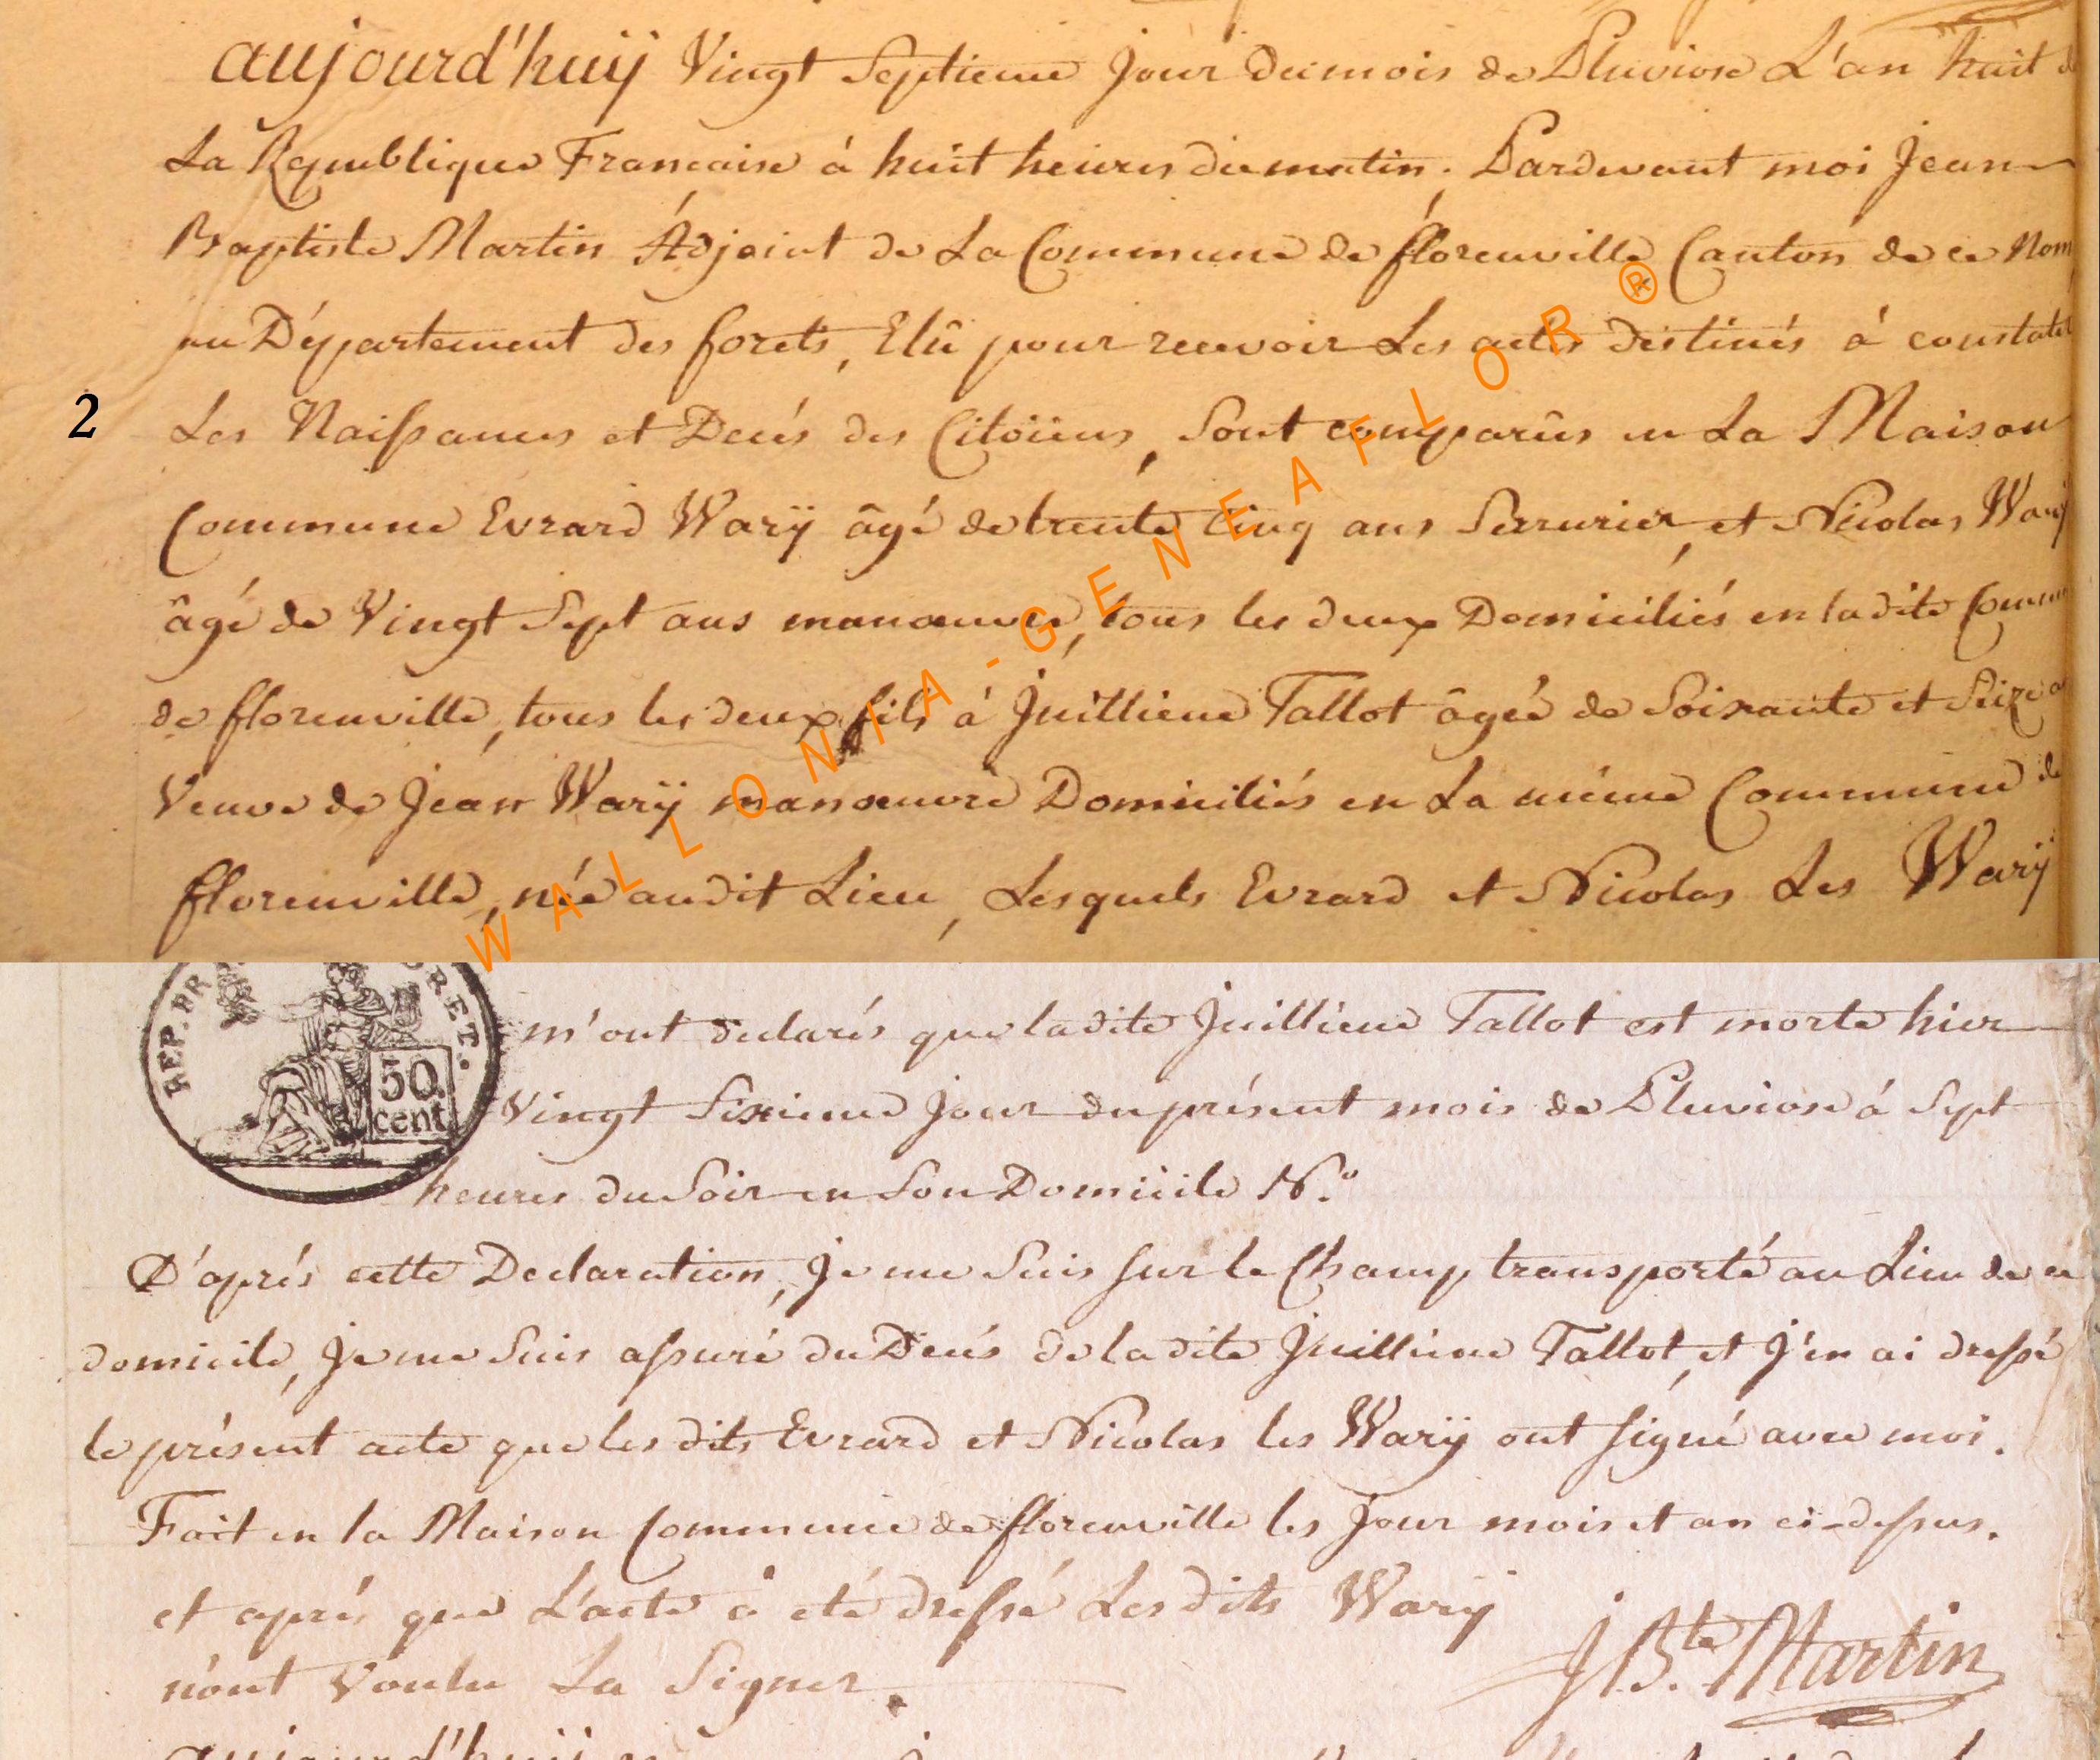 aujourd'huÿ Vingt Septieme Jour du mois de Pluviose L'an huit de
La Republique Francaise à huit heures du matin. Pardevant moi Jean
Baptiste Martin Adjoint de La Commune de florenville Canton de ce Nom
au Département des forets, Elû pour recevoir Les actes destinés à constater
2
Les Naissances et Decés des Citoïens, Sont comparûs en La Maison
Commune Evrard Warÿ âgé de trente Cinq ans Serrurier, et Nicolas Warÿ
âgé de Vingt Sept ans manoeuvre, tous les deux Domiciliés en la dite Commune
de florenville, tous les deux fils à Juilliene Tallot âgée de Soixante et Seize
Veuve de Jean Warÿ manoeuvre Domiciliés en La même Commune de
florenville, née audit Lieu, Lesquels Evrard et Nicolas Les Warÿ
WALLONIA-GENEAFLOR®
REP. FR
RET.
50
cent
m'ont declarés que la dite Juilliene Tallot est morte hier
Vingt Sixieme Jour du présent mois de Pluviose à Sept
heures du Soir en Son Domicile N.o
D'aprés cette Declaration, Je me Suis Sur le Champ transporté au Lieu de ce
domicile, Je me Suis assuré du Decés de la dite Juilliene Tallot, et J'en ai dressé
le présent acte que les dits Evrard et Nicolas les Warÿ ont Signé avec moi.
Fait en la Maison Commune de florenville les Jour mois et an ci-dessus.
et aprés que L'acte à eté dressé Les dits Warÿ
n'ont Voulu La Signer.
J Bte. Martin
aujourd'huÿ